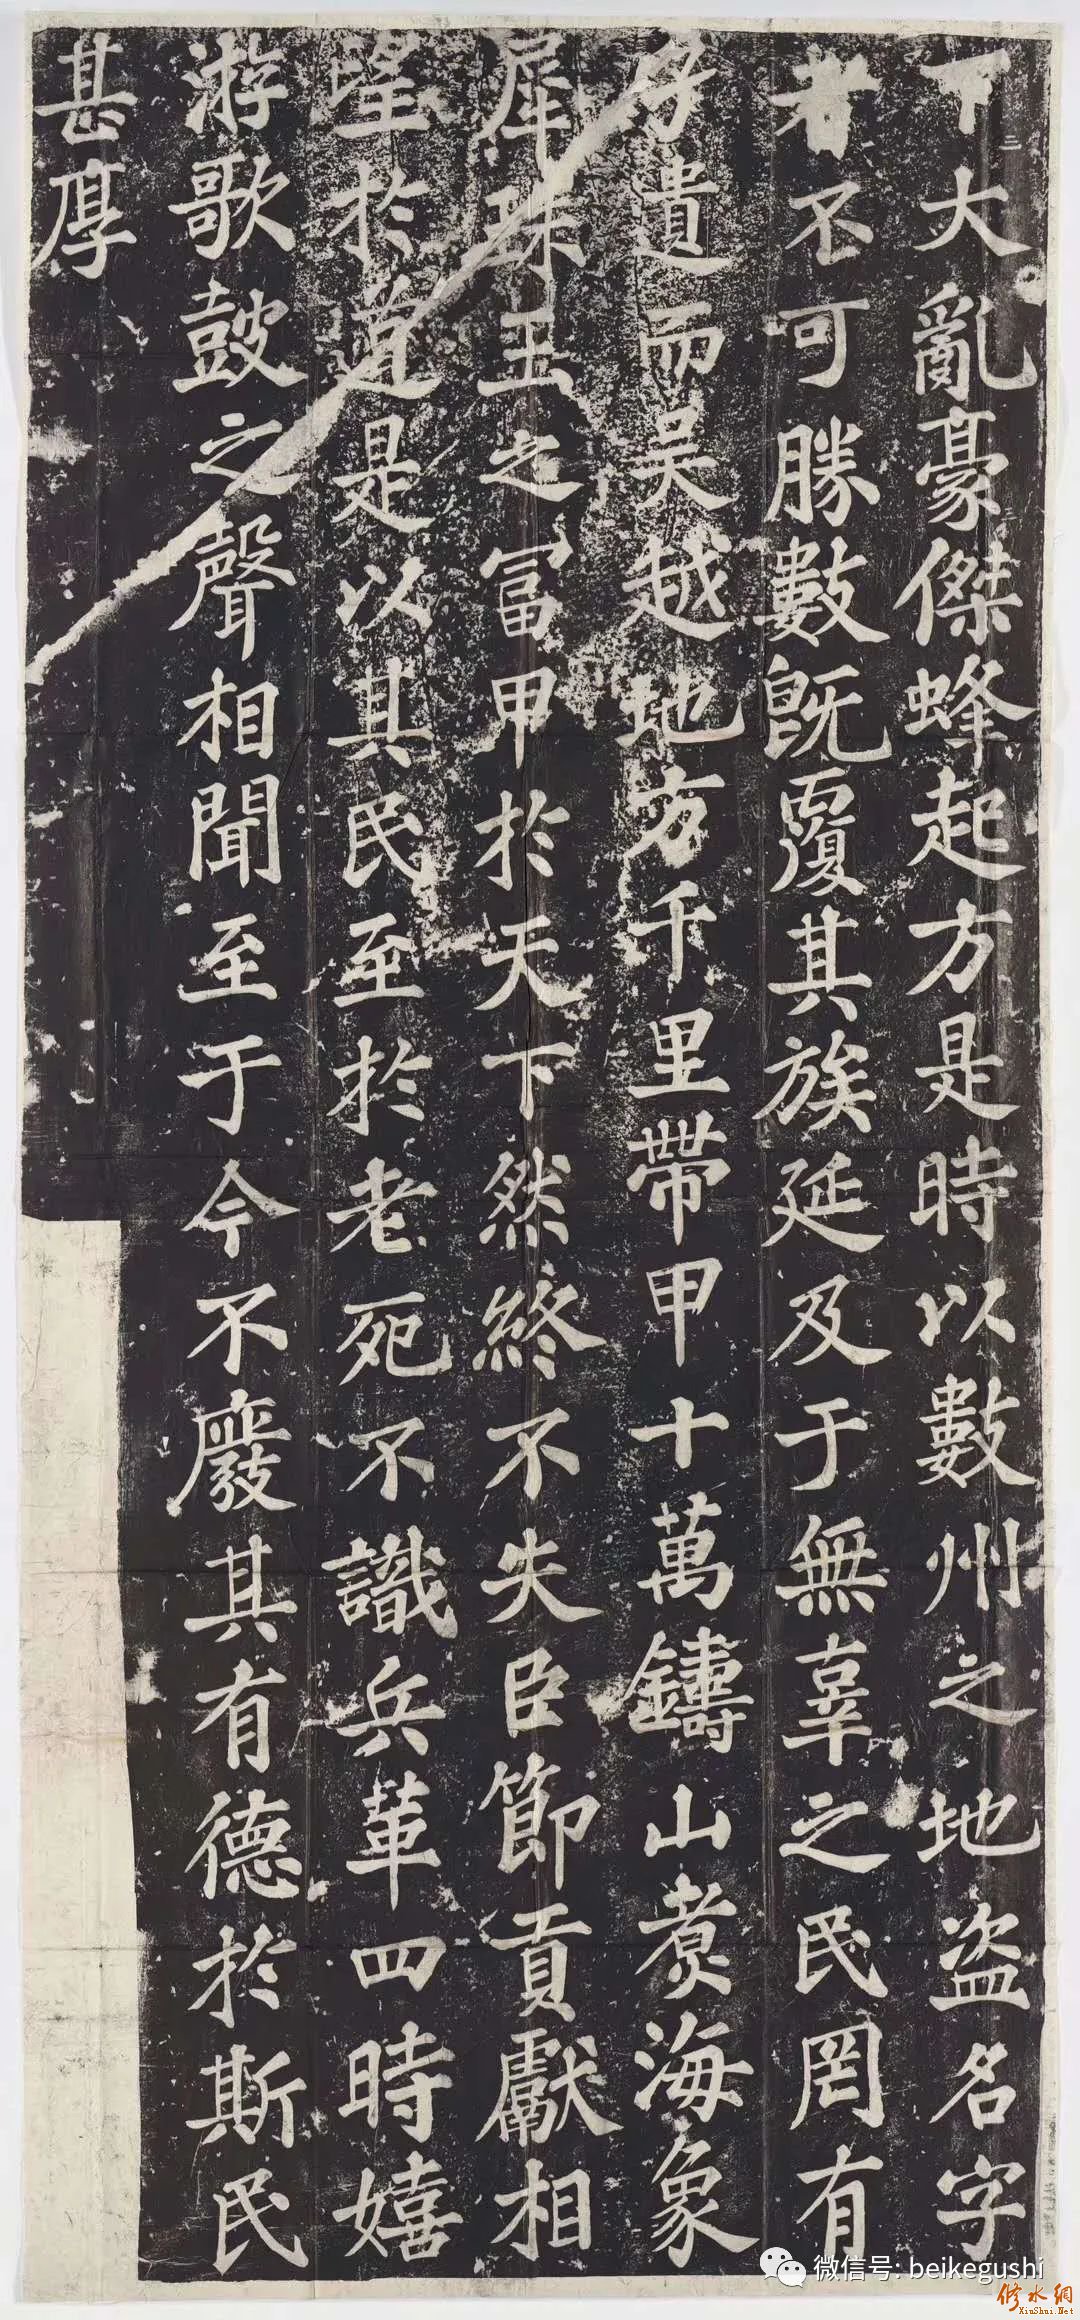 下大亂豪傑蜂起方是時以數州之地盜名字
者不可勝數既覆其族延及于無辜之民罔有
孑遺而吳越地方千里帶甲十萬鑄山煑海象
犀珠玉之冨甲於天下然終不失臣節貢獻相
望於道是以其民至於老死不識兵革四時嬉
游歌鼓之聲相聞至于今不廢其有德於斯民
甚厚
三
微信号: beikegushi
修水網
XiuShui.Net